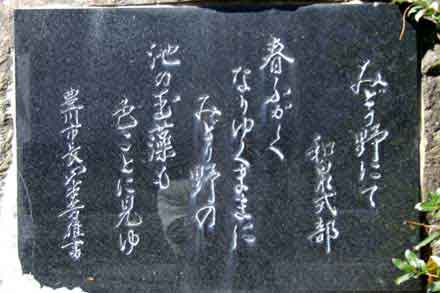 みどり野にて
和泉式部
春ふかく
なりゆくままに
みどり野の
池の玉藻も
色ことに見ゆ
豊川市長 芳雄書